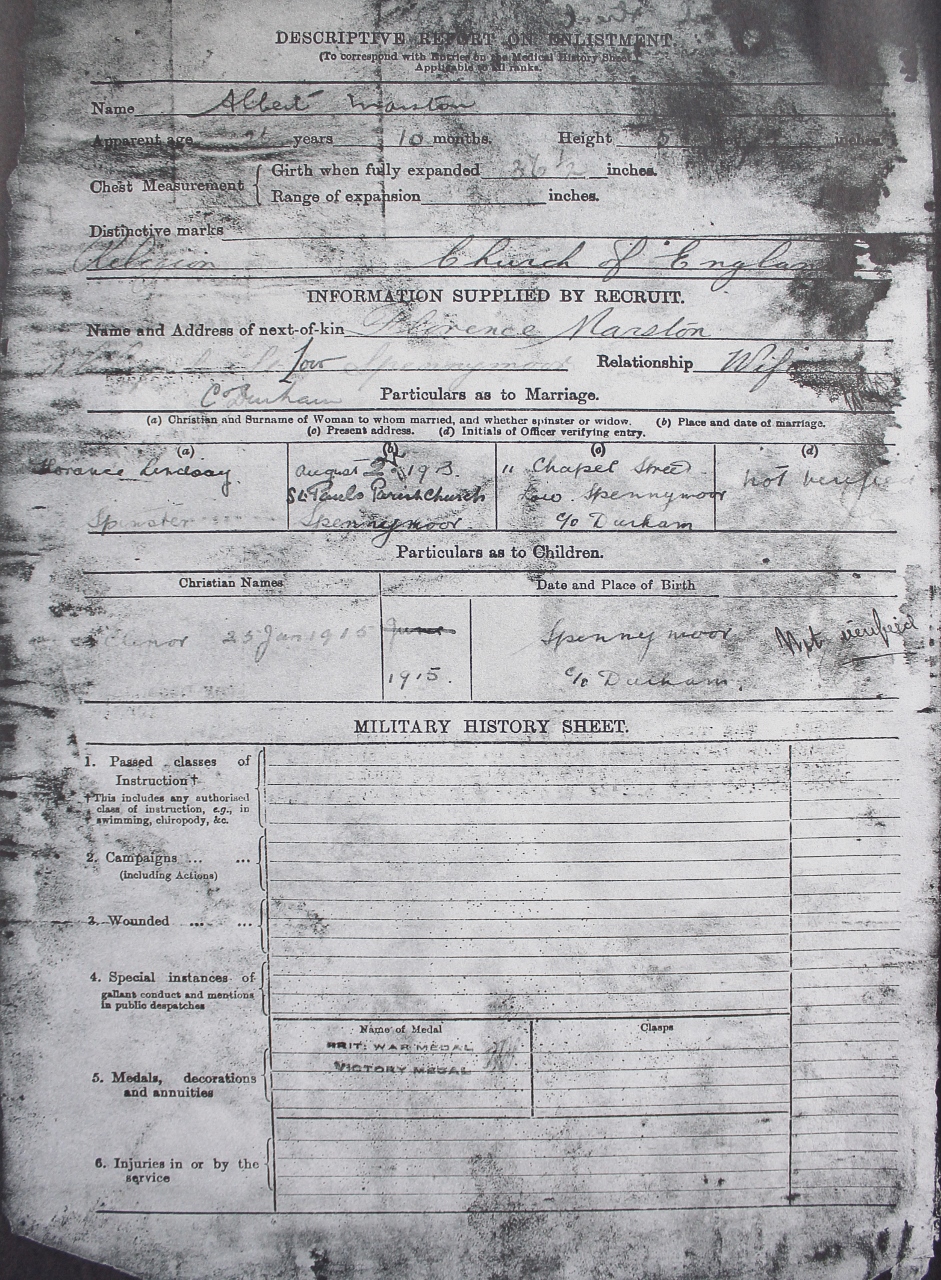 DESCRIPTIVE REPORT ON ENLISTMENT.
(To correspond with Entries on the Medical History Sheet.)
Applicable to all ranks.
Name Albert Marston
Apparent age years 10 months. Height 5 inches.
Chest Measurement { Girth when fully expanded 36 1/2 inches.
Range of expansion inches.
Distinctive marks
Religion Church of England
INFORMATION SUPPLIED BY RECRUIT.
Name and Address of next-of-kin Florence Marston
Low Spennymoor Relationship Wife
Co Durham Particulars as to Marriage.
(a) Christian and Surname of Woman to whom married, and whether spinster or widow. (b) Place and date of marriage.
(c) Present address. (d) Initials of Officer verifying entry.
(a) (b) (c) (d)
Florance Lindsay August 2 1913 11 Chapel Street not verified
St. Pauls Parish Church Low. Spennymoor
Spinster Spennymoor. c/o Durham
Particulars as to Children.
Christian Names Date and Place of Birth
25 Jan 1915 June Spennymoor Not verified
1915. c/o Durham.
MILITARY HISTORY SHEET.
1. Passed classes of
Instruction†
†This includes any authorised
class of instruction, e.g., in
swimming, chiropody, &c.
2. Campaigns ... ...
(including Actions)
3. Wounded ... ...
4. Special instances of
gallant conduct and mentions
in public despatches
Name of Medal Clasps
BRIT: WAR MEDAL
VICTORY MEDAL
5. Medals, decorations
and annuities
6. Injuries in or by the
service